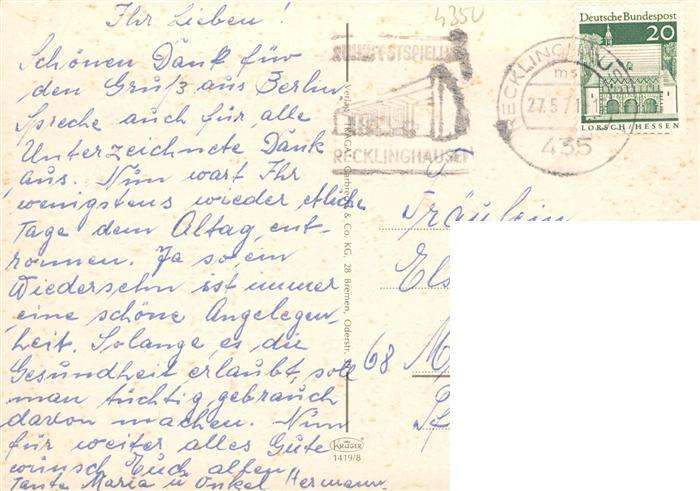 Ihr Lieben!
Schönen Dank für
den Gruß aus Berlin
Spreche auch für alle
Unterzeichnete Dank
aus. Nun wart Ihr
wenigstens wieder etliche
Tage dem Altag ent-
ronnen. Ja so ein
Wiedersehn ist immer
eine schöne Angelegen,
heit. Solange es die
Gesundheit erlaubt, soll
man tüchtig gebrauch
davon machen. Nun
für weiter alles Gute
wünsch Euch allen
Tante Maria u Onkel Hermann
4350
FESTSPIELE
RECKLINGHAUSEN
RECKLINGHAUSEN
ms
27.5.71
435
Deutsche Bundespost
20
LORSCH/HESSEN
& Co. KG, 28 Bremen, Oderstr.
KRÜGER
1419/8
Fräulein
Els
68 M